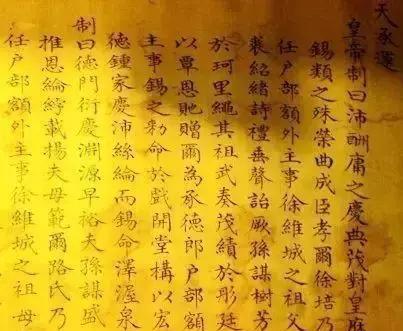 天承運
皇帝制曰沛酬庸之慶典茂對皇庥
錫類之殊榮曲成臣孝爾徐培乃
任户部額外主事徐維城之祖父
裘紹緒詩禮垂聲詒厥孫謀樹芳
於珂里繩其祖武奏茂績於彤廷
以覃恩貤贈爾為承德郎户部額
主事錫之勅命於戲開堂構以宏
德鍾家慶沛絲綸而錫命澤渥泉
制曰德門衍慶淵源早裕夫孫謀盛
推恩綸綍載揚夫母範爾路氏乃
任户部額外主事徐維城之祖母